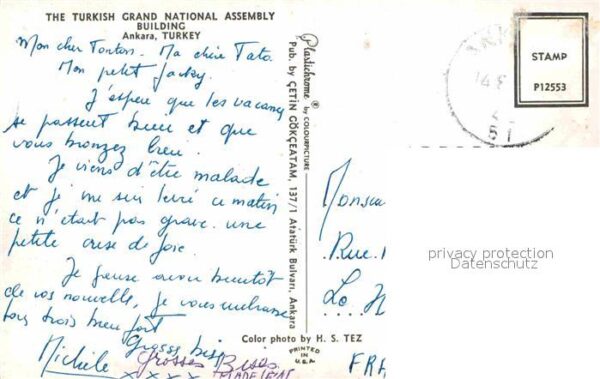 THE TURKISH GRAND NATIONAL ASSEMBLY
BUILDING
Ankara, TURKEY
Mon cher Tonton. Ma chère Tata.
Mon petit Jacky.
J'espère que les vacances
se passent bien et que
vous bronzez bien.
Je viens d'être malade
et je me suis levée ce matin
ce n'était pas grave. une
petite crise de foie.
Je pense avoir bientôt
de vos nouvelles, je vous embrasse
tous trois bien fort
Grosses bises
Michèle Grosses Bises
Plastichrome ® by COLOURPICTURE
Pub. by ÇETİN GÖKÇEATAM, 137/1 Atatürk Bulvarı, Ankara
Color photo by H. S. TEZ
PRINTED IN
U.S.A.
STAMP
P12553
Rue
privacy protection
Datenschutz
FRA